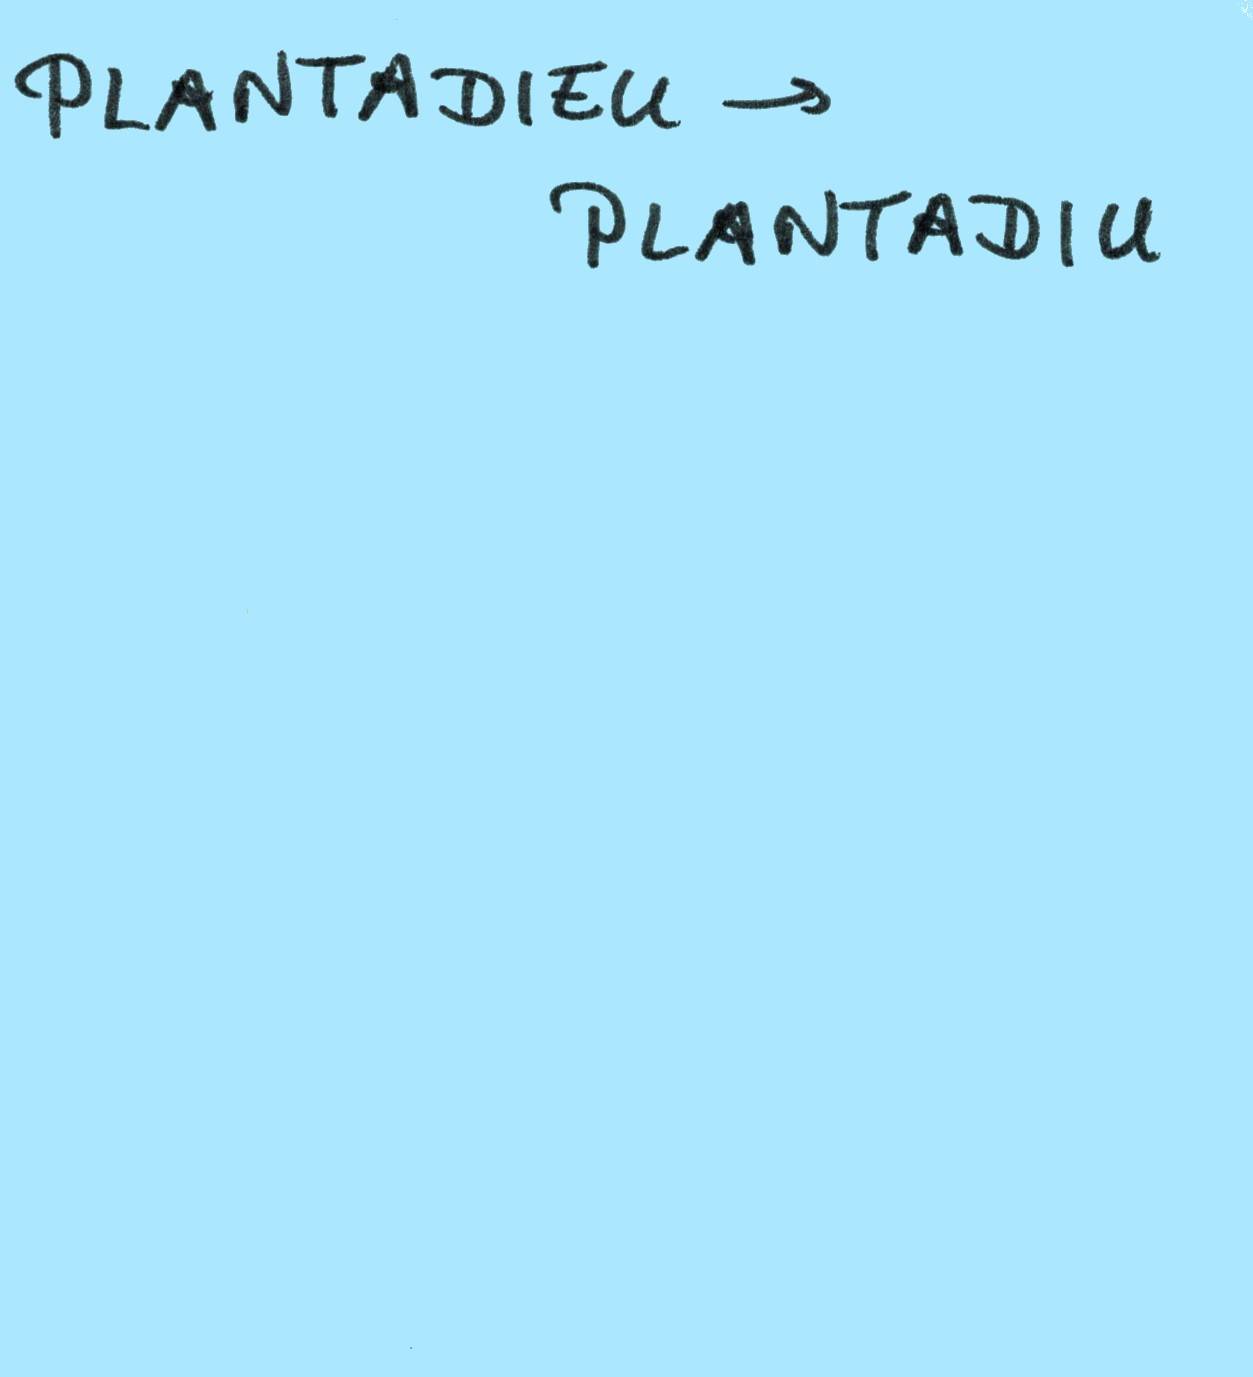 PLANTADIEU →
PLANTADIU